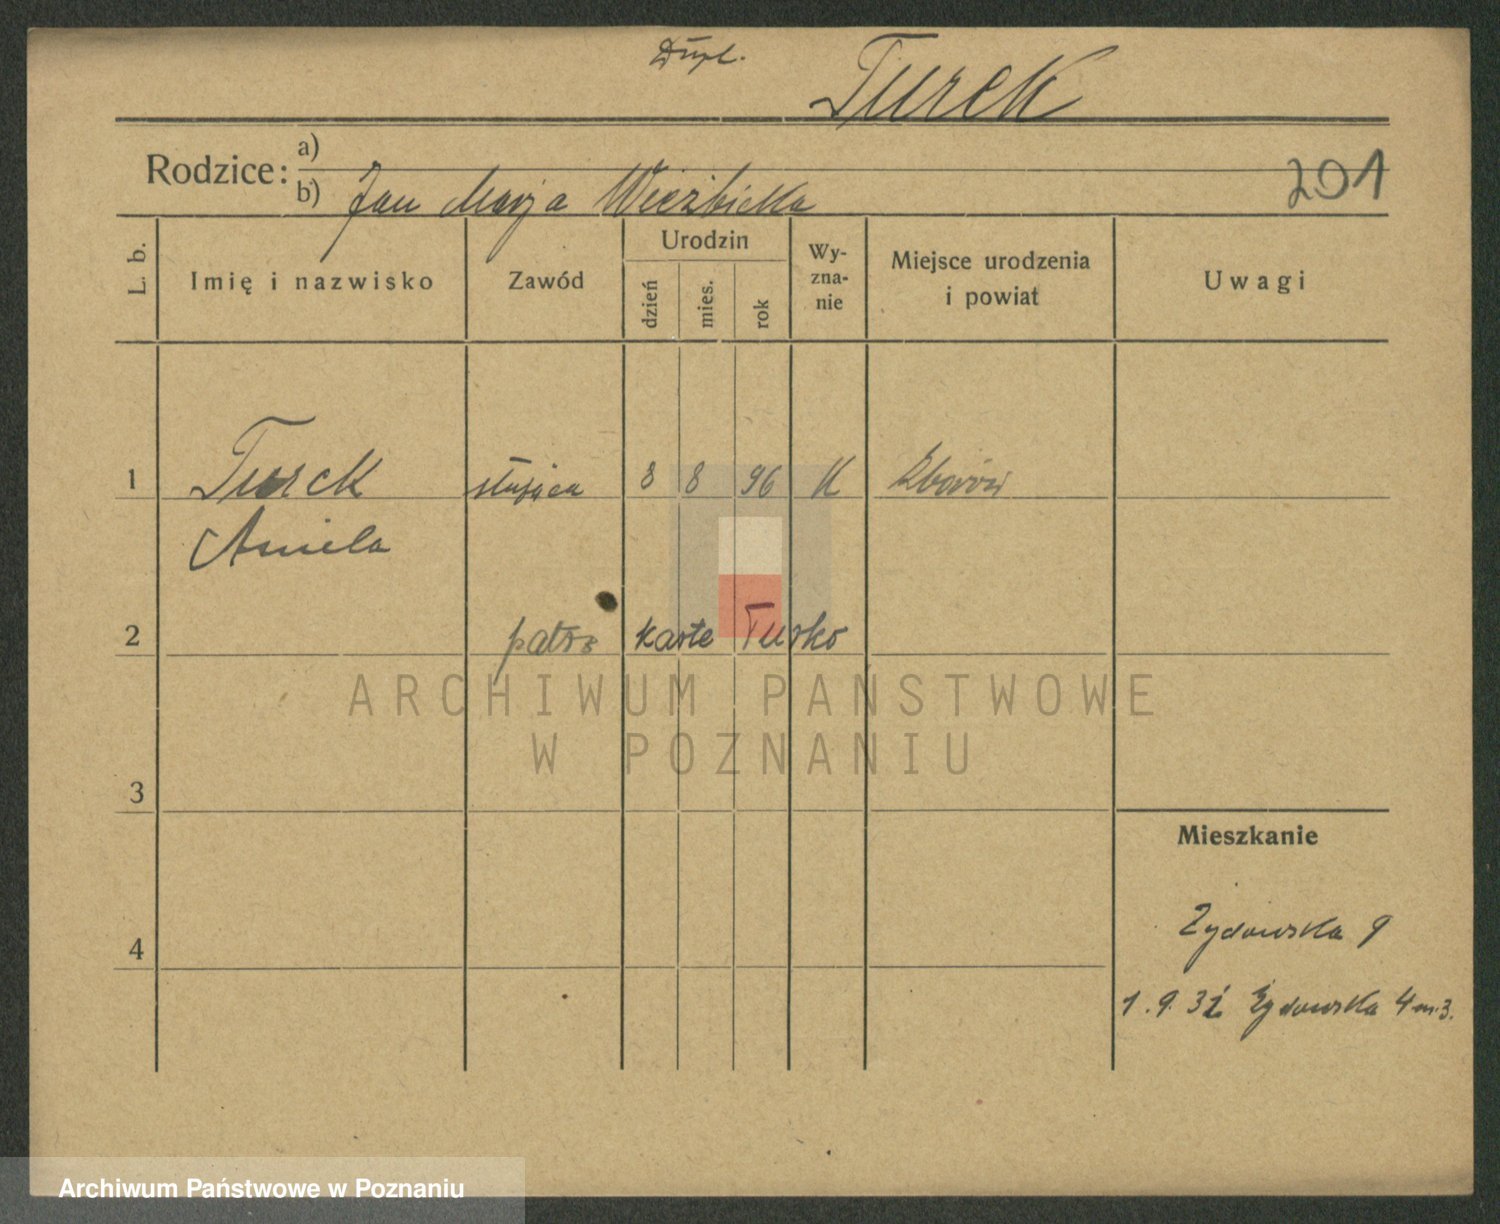 Dupl.
Turek
Rodzice: a)
b) Jan Marja Wieźbicka
201
L. b.
Imię i nazwisko
Zawód
Urodzin
dzień
mies.
rok
Wy-
zna-
nie
Miejsce urodzenia
i powiat
Uwagi
1 Turek służąca 8 8 96 K Zborów
Aniela
2 patrz karte Turko
ARCHIWUM PAŃSTWOWE
W POZNANIU
3
Mieszkanie
Żydowska 9
4
1.9.32 Żydowska 4 m. 3.
Archiwum Państwowe w Poznaniu